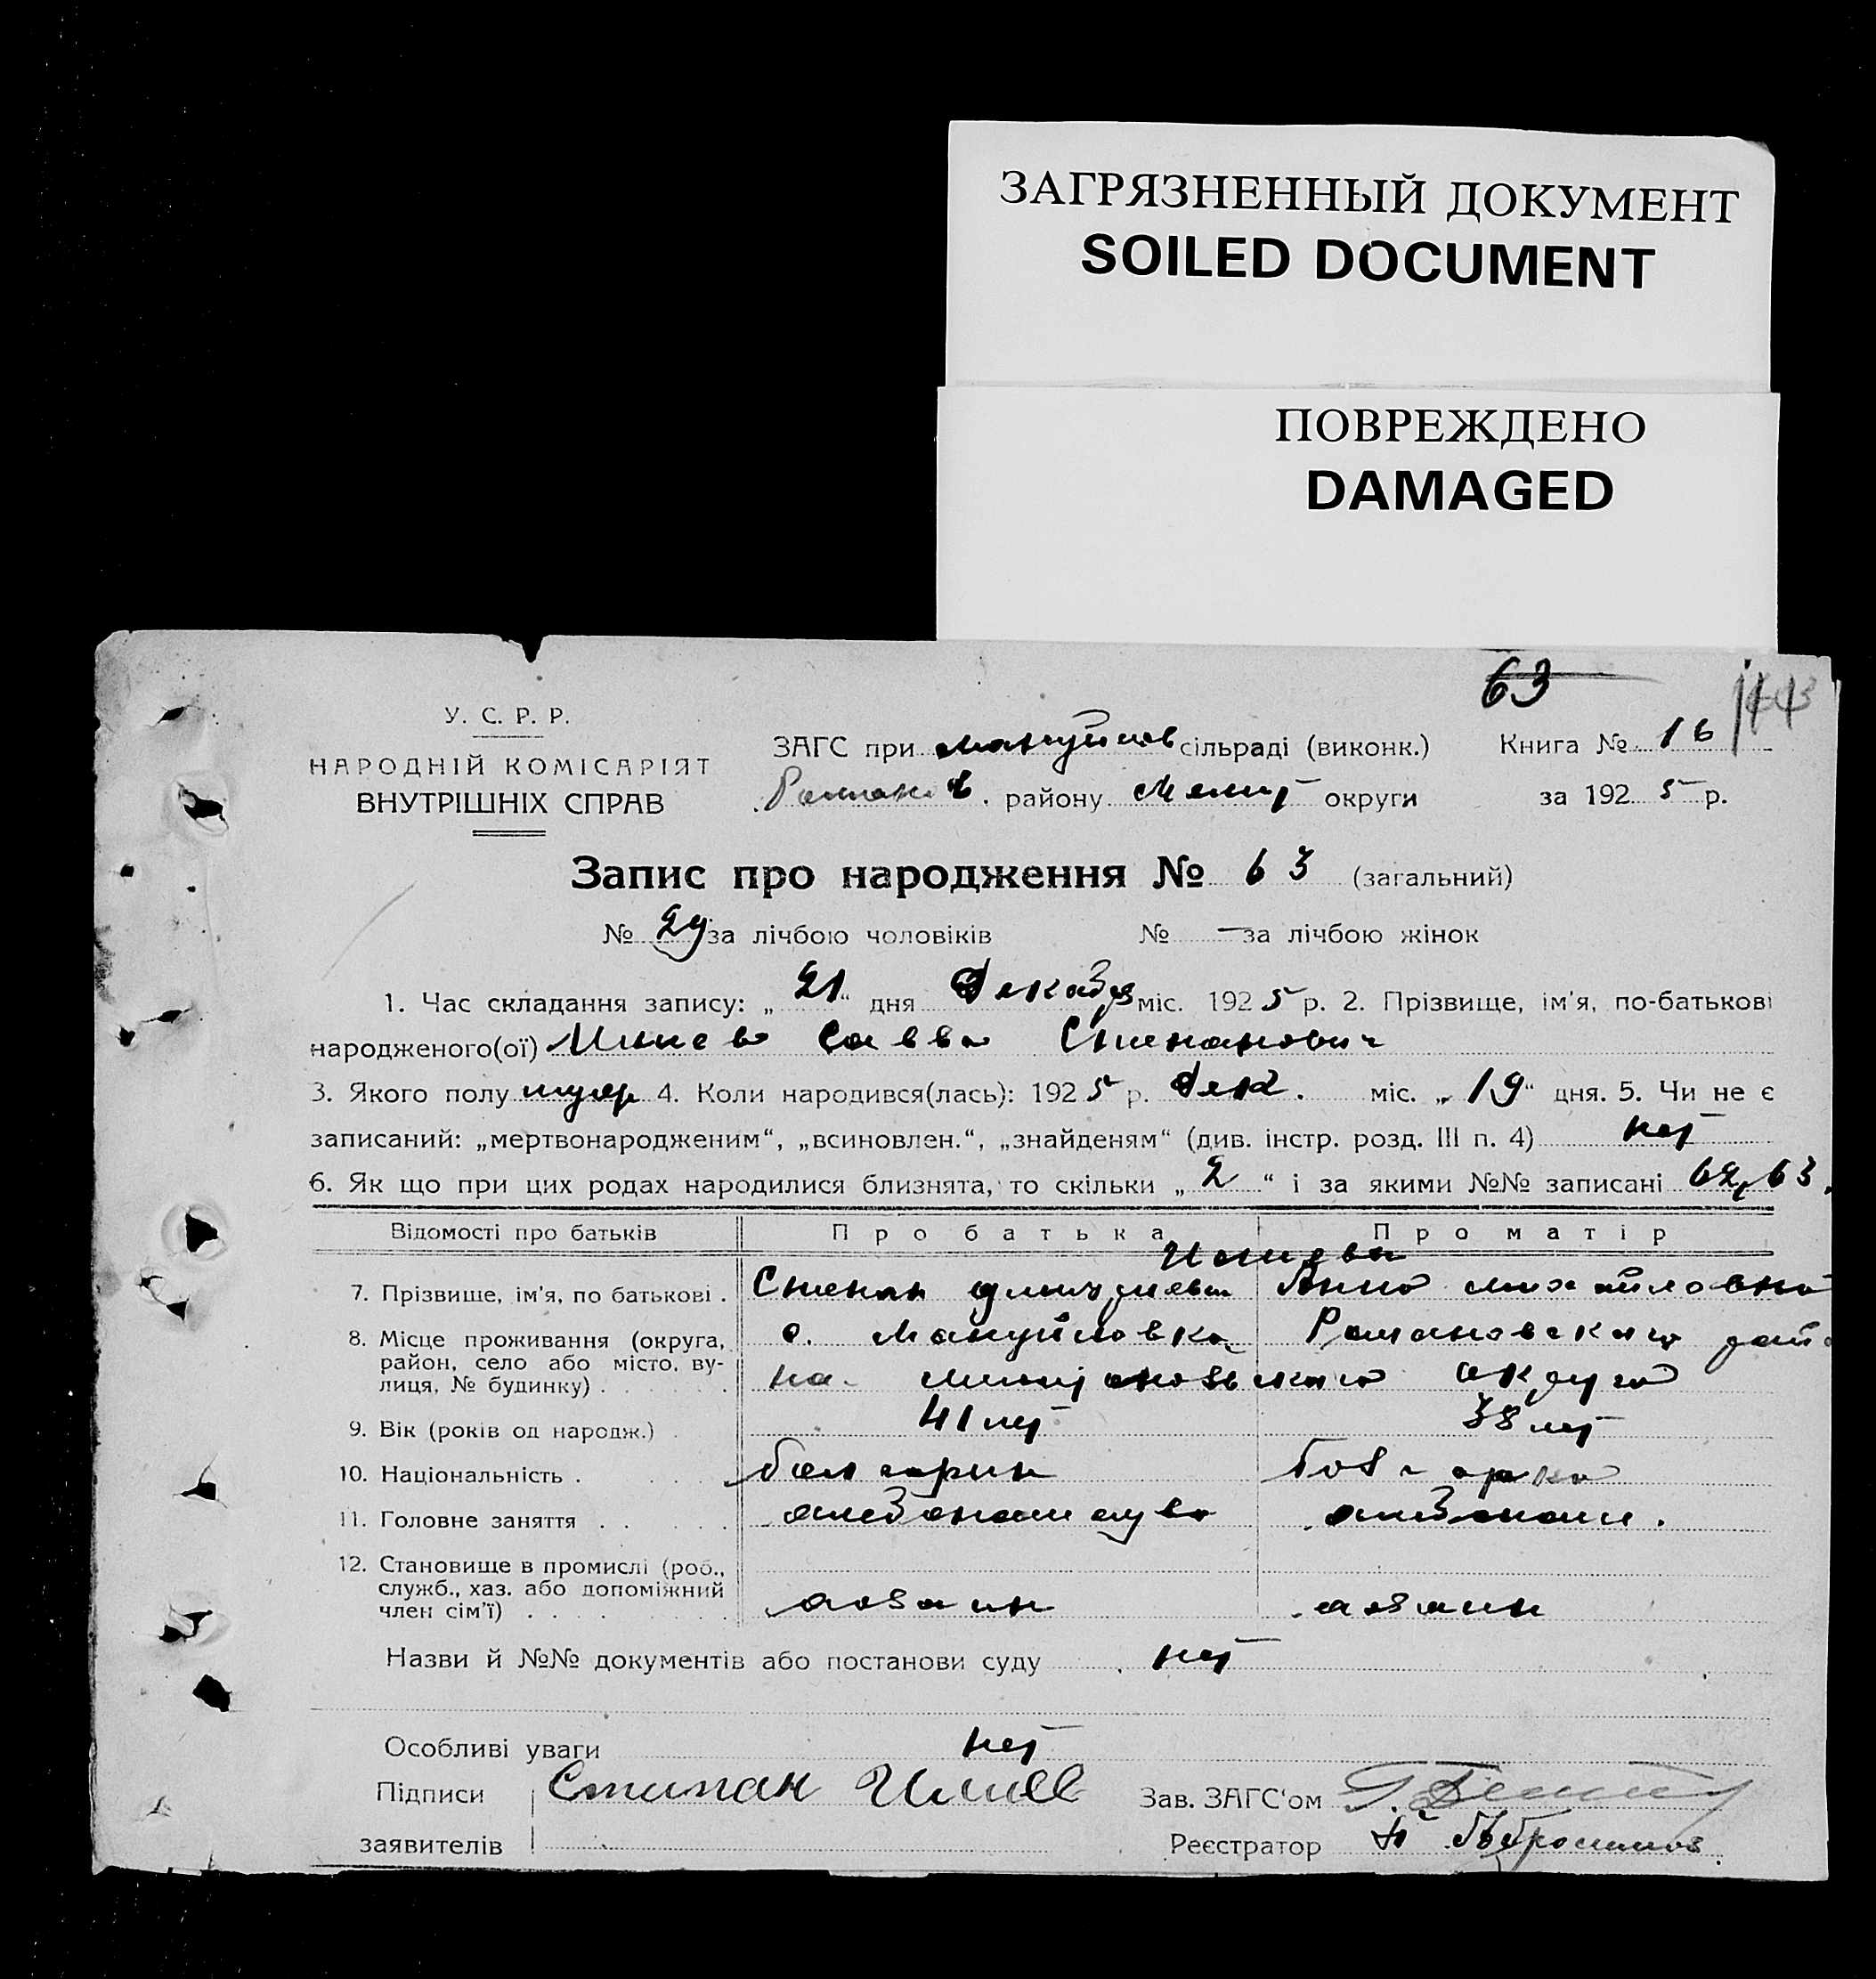 ЗАГРЯЗНЕННЫЙ ДОКУМЕНТ
SOILED DOCUMENT
ПОВРЕЖДЕНО
DAMAGED
63
У. С. Р. Р.
НАРОДНІЙ КОМІСАРІЯТ
ВНУТРІШНІХ СПРАВ
ЗАГС при Мануйлов сільраді (виконк.)
Романов. району Мелит округи
Книга № 16
за 1925 р.
Запис про народження № 63 (загальний)
№ 29 за лічбою чоловіків № — за лічбою жінок
1. Час складання запису: „21“ дня Декабря міс. 1925 р. 2. Прізвище, ім'я, по-батькові
народженого(ої) Савва Степанович
3. Якого полу муж 4. Коли народився(лась): 1925 р. Дек. міс. „19“ дня. 5. Чи не є
записаний: „мертвонародженим“, „всиновлен.“, „знайденям“ (див. інстр. розд. III п. 4) нет
6. Як що при цих родах народилися близнята, то скільки „2“ і за якими №№ записані 62, 63.
Відомості про батьків Про батька Про матір
7. Прізвище, ім'я, по батькові . Степан Анна Михайловна
8. Місце проживання (округа, район, село або місто, вулиця, № будинку) . с. Мануйловка Романовского райо
на округа
9. Вік (років од народж.) . 41 лет 38 лет
10. Національність . болгарин болгарка
11. Головне заняття . . хлебопашество хлебопаш.
12. Становище в промислі (роб., служб., хаз. або допоміжний член сім'ї) . хозяин хозяин
Назви й №№ документів або постанови суду нет
Особливі уваги нет
Підписи заявителів Стипан
Зав. ЗАГС'ом
Реєстратор